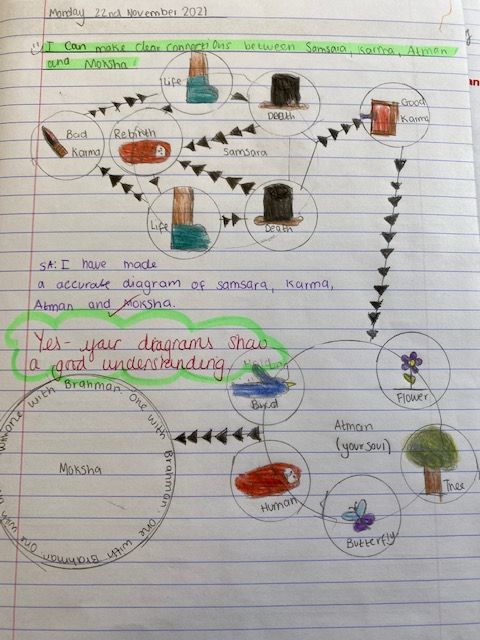 Monday 22nd November 2021
I can make clear connections between Samsara, Karma, Atman
and Moksha
Life
Death
Good
Karma
Bad
Karma
Rebirth
Samsara
Life
Death
SA: I have made
a accurate diagram of samsara, karma,
Atman and Moksha.
Yes- your diagrams show
a good understanding
Bird
Flower
Atman
(your soul)
Tree
Human
Butterfly
Moksha
one with Brahman one with Brahman one with Brahman one with